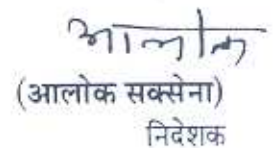 आलोक
(आलोक सक्सेना)
निदेशक